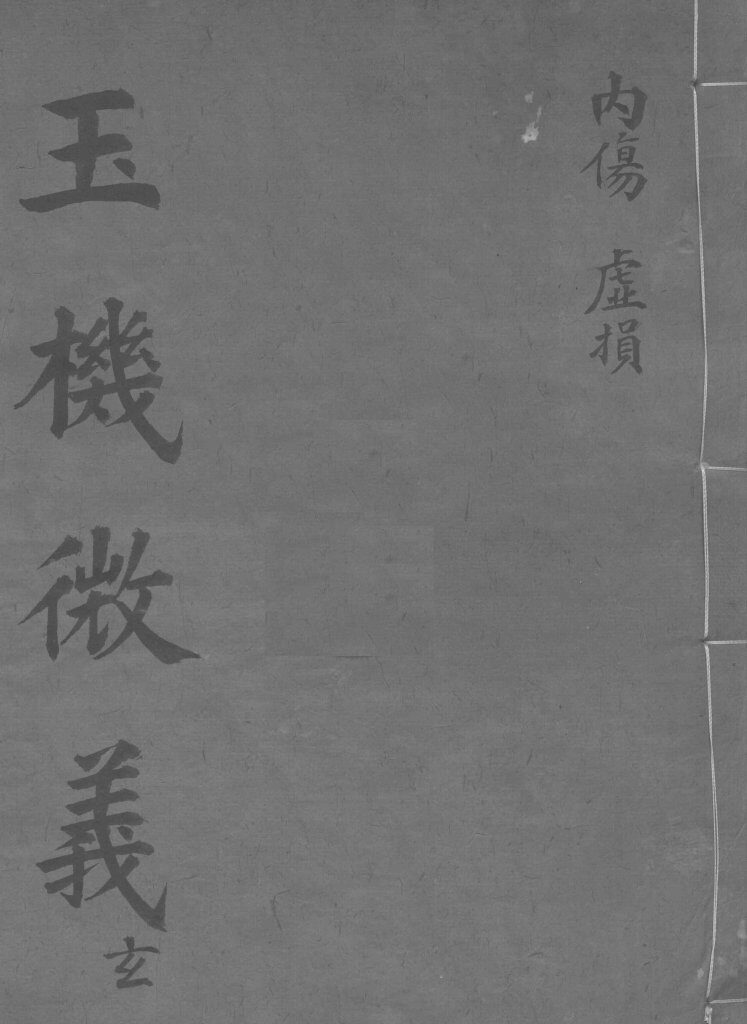 内傷　虛損
玉機微義 玄